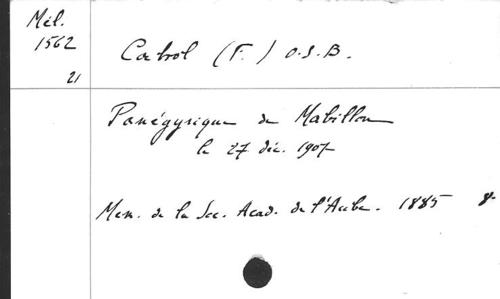 Mél.
1562
21
Cabrol (F.) O.S.B.
Panégyrique de Mabillon
le 27 déc. 1907
Mem. de la Soc. Acad. de l'Aube. 1885 8°